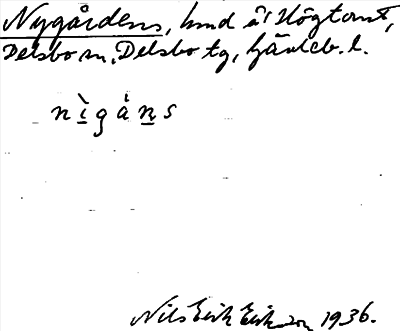 Nygårdens, hmd å Högtomt,
Delsbo sn, Delsbo tg, Gävleb. l.
nìgåns
Nils Erik Eriksson 1936.